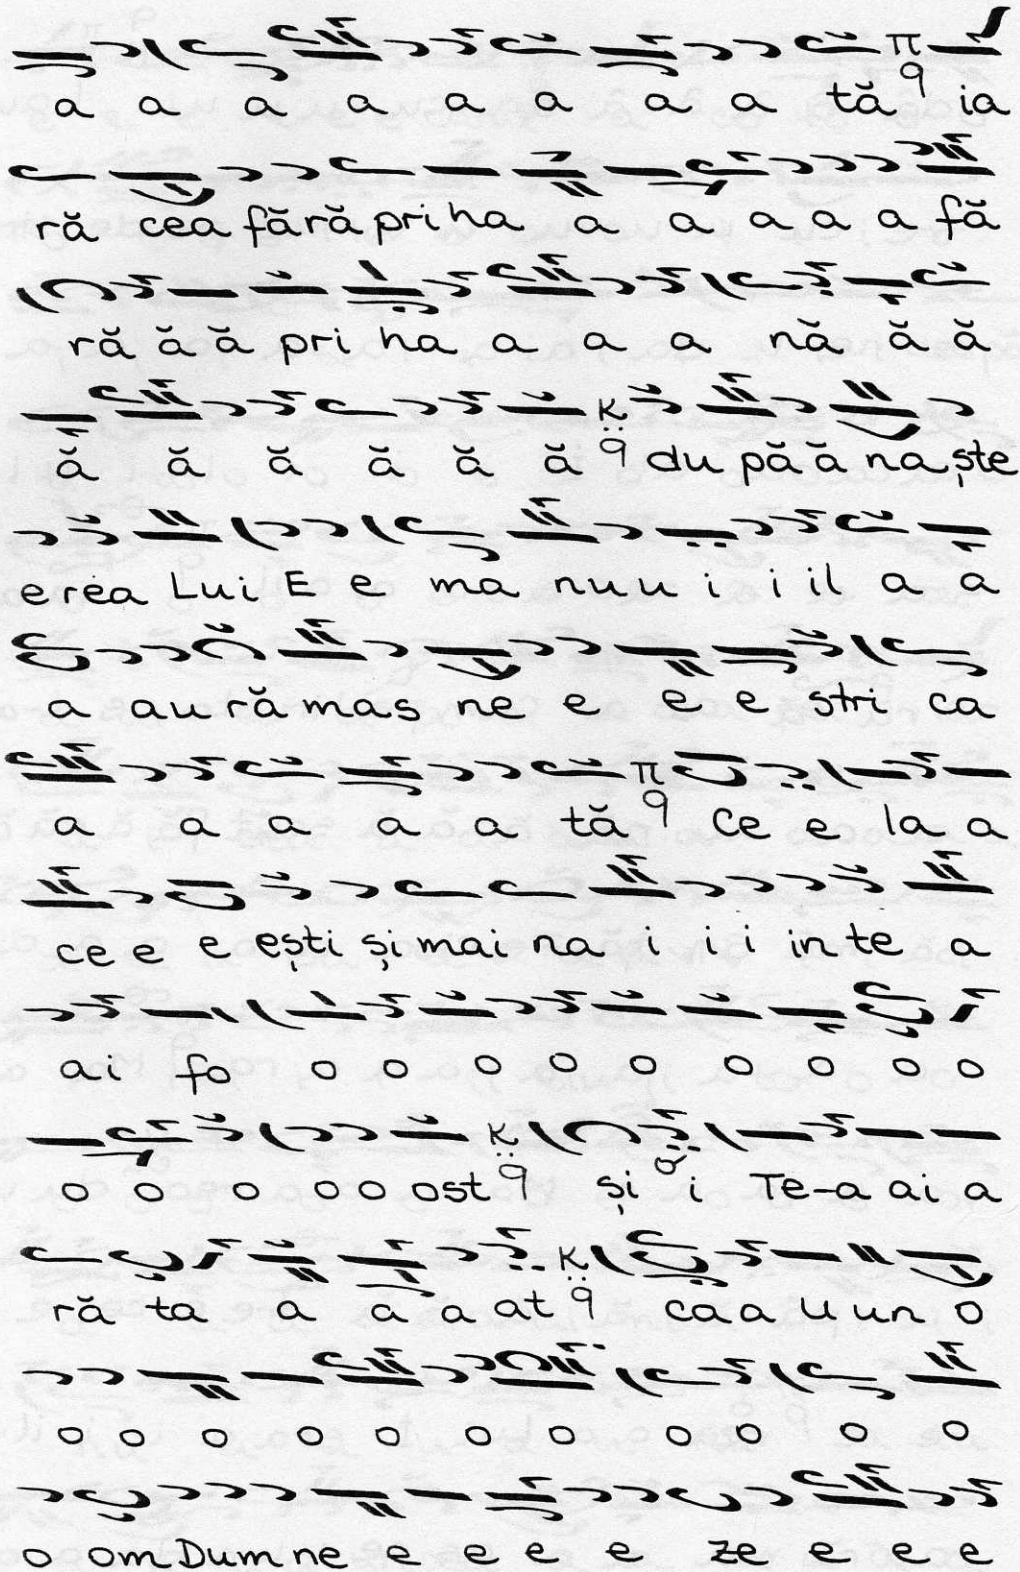 a a a a a a a a tă ia
ră cea fără pri ha a a a a a fă
ră ă ă pri ha a a a nă ă ă
ă ă ă ă ă ă du pă ă na ște
e rea Lui E e ma nu u i i il a a
a au ră mas ne e e e stri ca
a a a a a tă Ce e la a
ce e e ești și mai na i i i in te a
ai fo o o o o o o o o o
o o o o o ost și i Te-a ai a
ră ta a a a at ca a u un o
o o o o o o o o o o o
o om Dum ne e e e e ze e e e